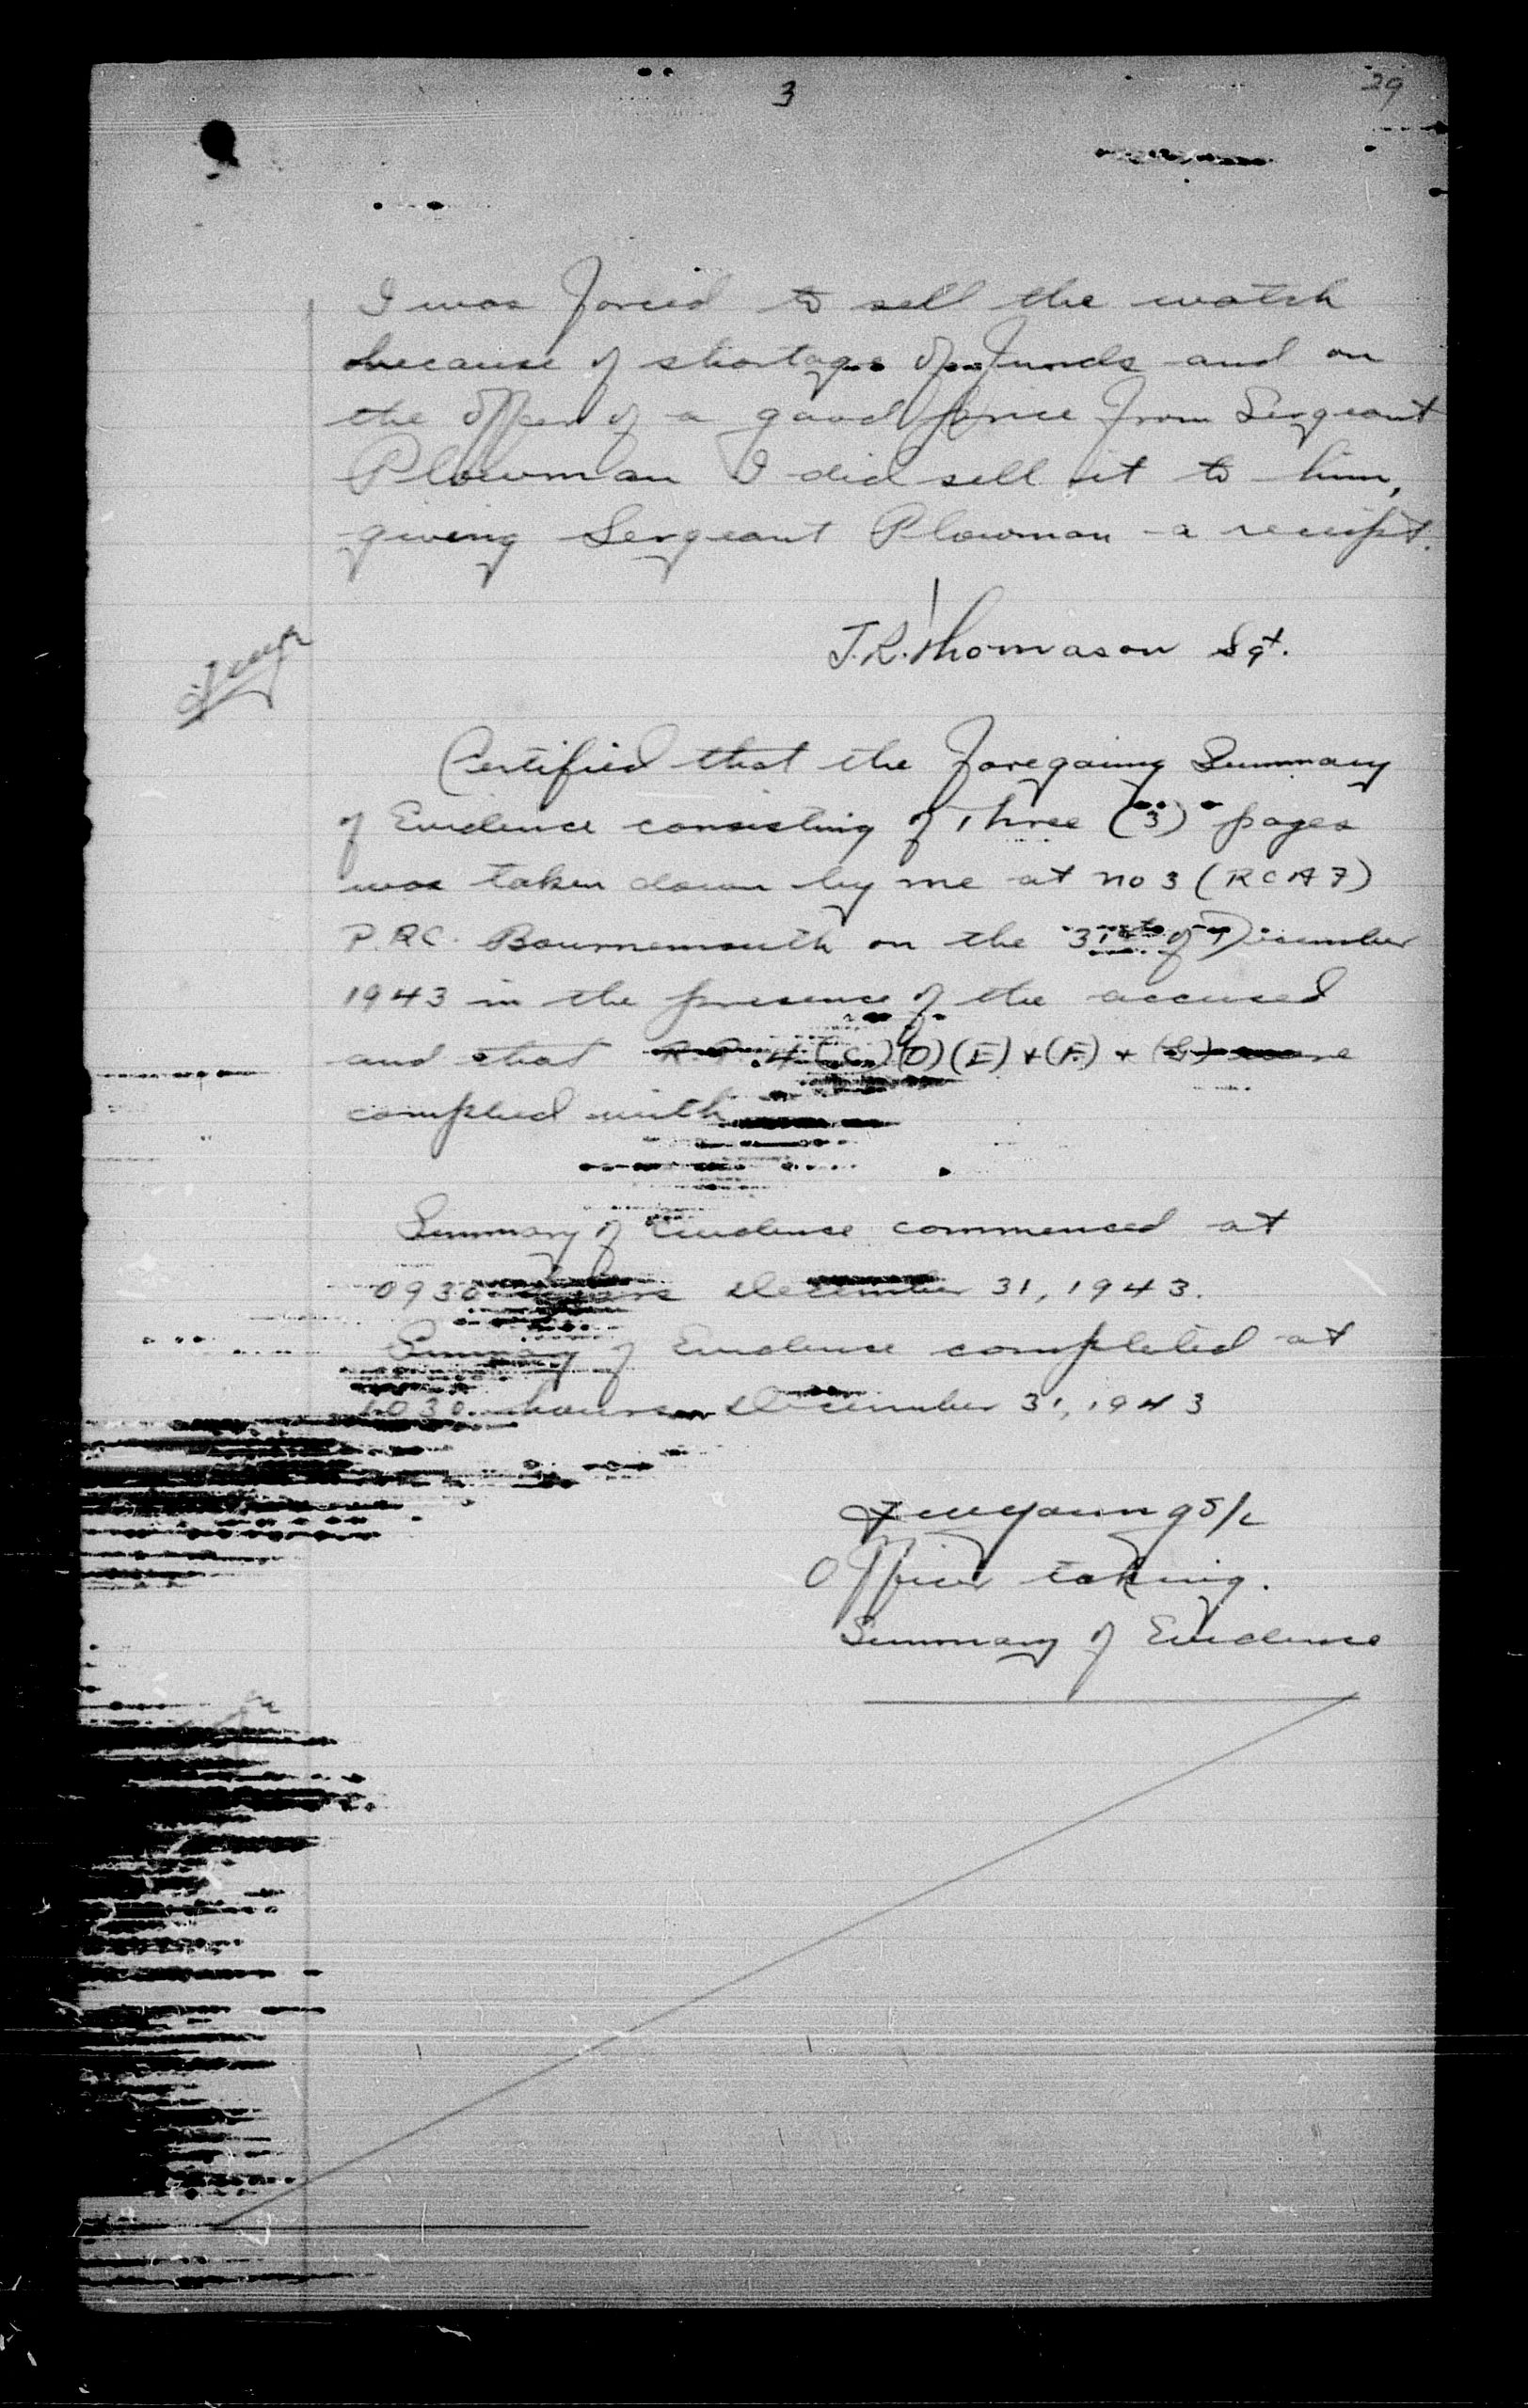 3
29
I was forced to sell the watch
because of shortage of funds and on
the offer of a good price from Sergeant
Plowman I did sell it to him,
giving Sergeant Plowman a receipt.
J.R. Thomason Sgt.
Certified that the foregoing Summary
of Evidence consisting of Three (3) pages
was taken down by me at no 3 (RCAF)
P.R.C. Bournemouth on the 31st of December
1943 in the presence of the accused
and that R.P. 4 (C) (D) (E) + (F) + (G) were
complied with
Summary of Evidence commenced at
0930 hours December 31, 1943.
Summary of Evidence completed at
1030 hours December 31, 1943
Young S/L
Officer taking.
Summary of Evidence